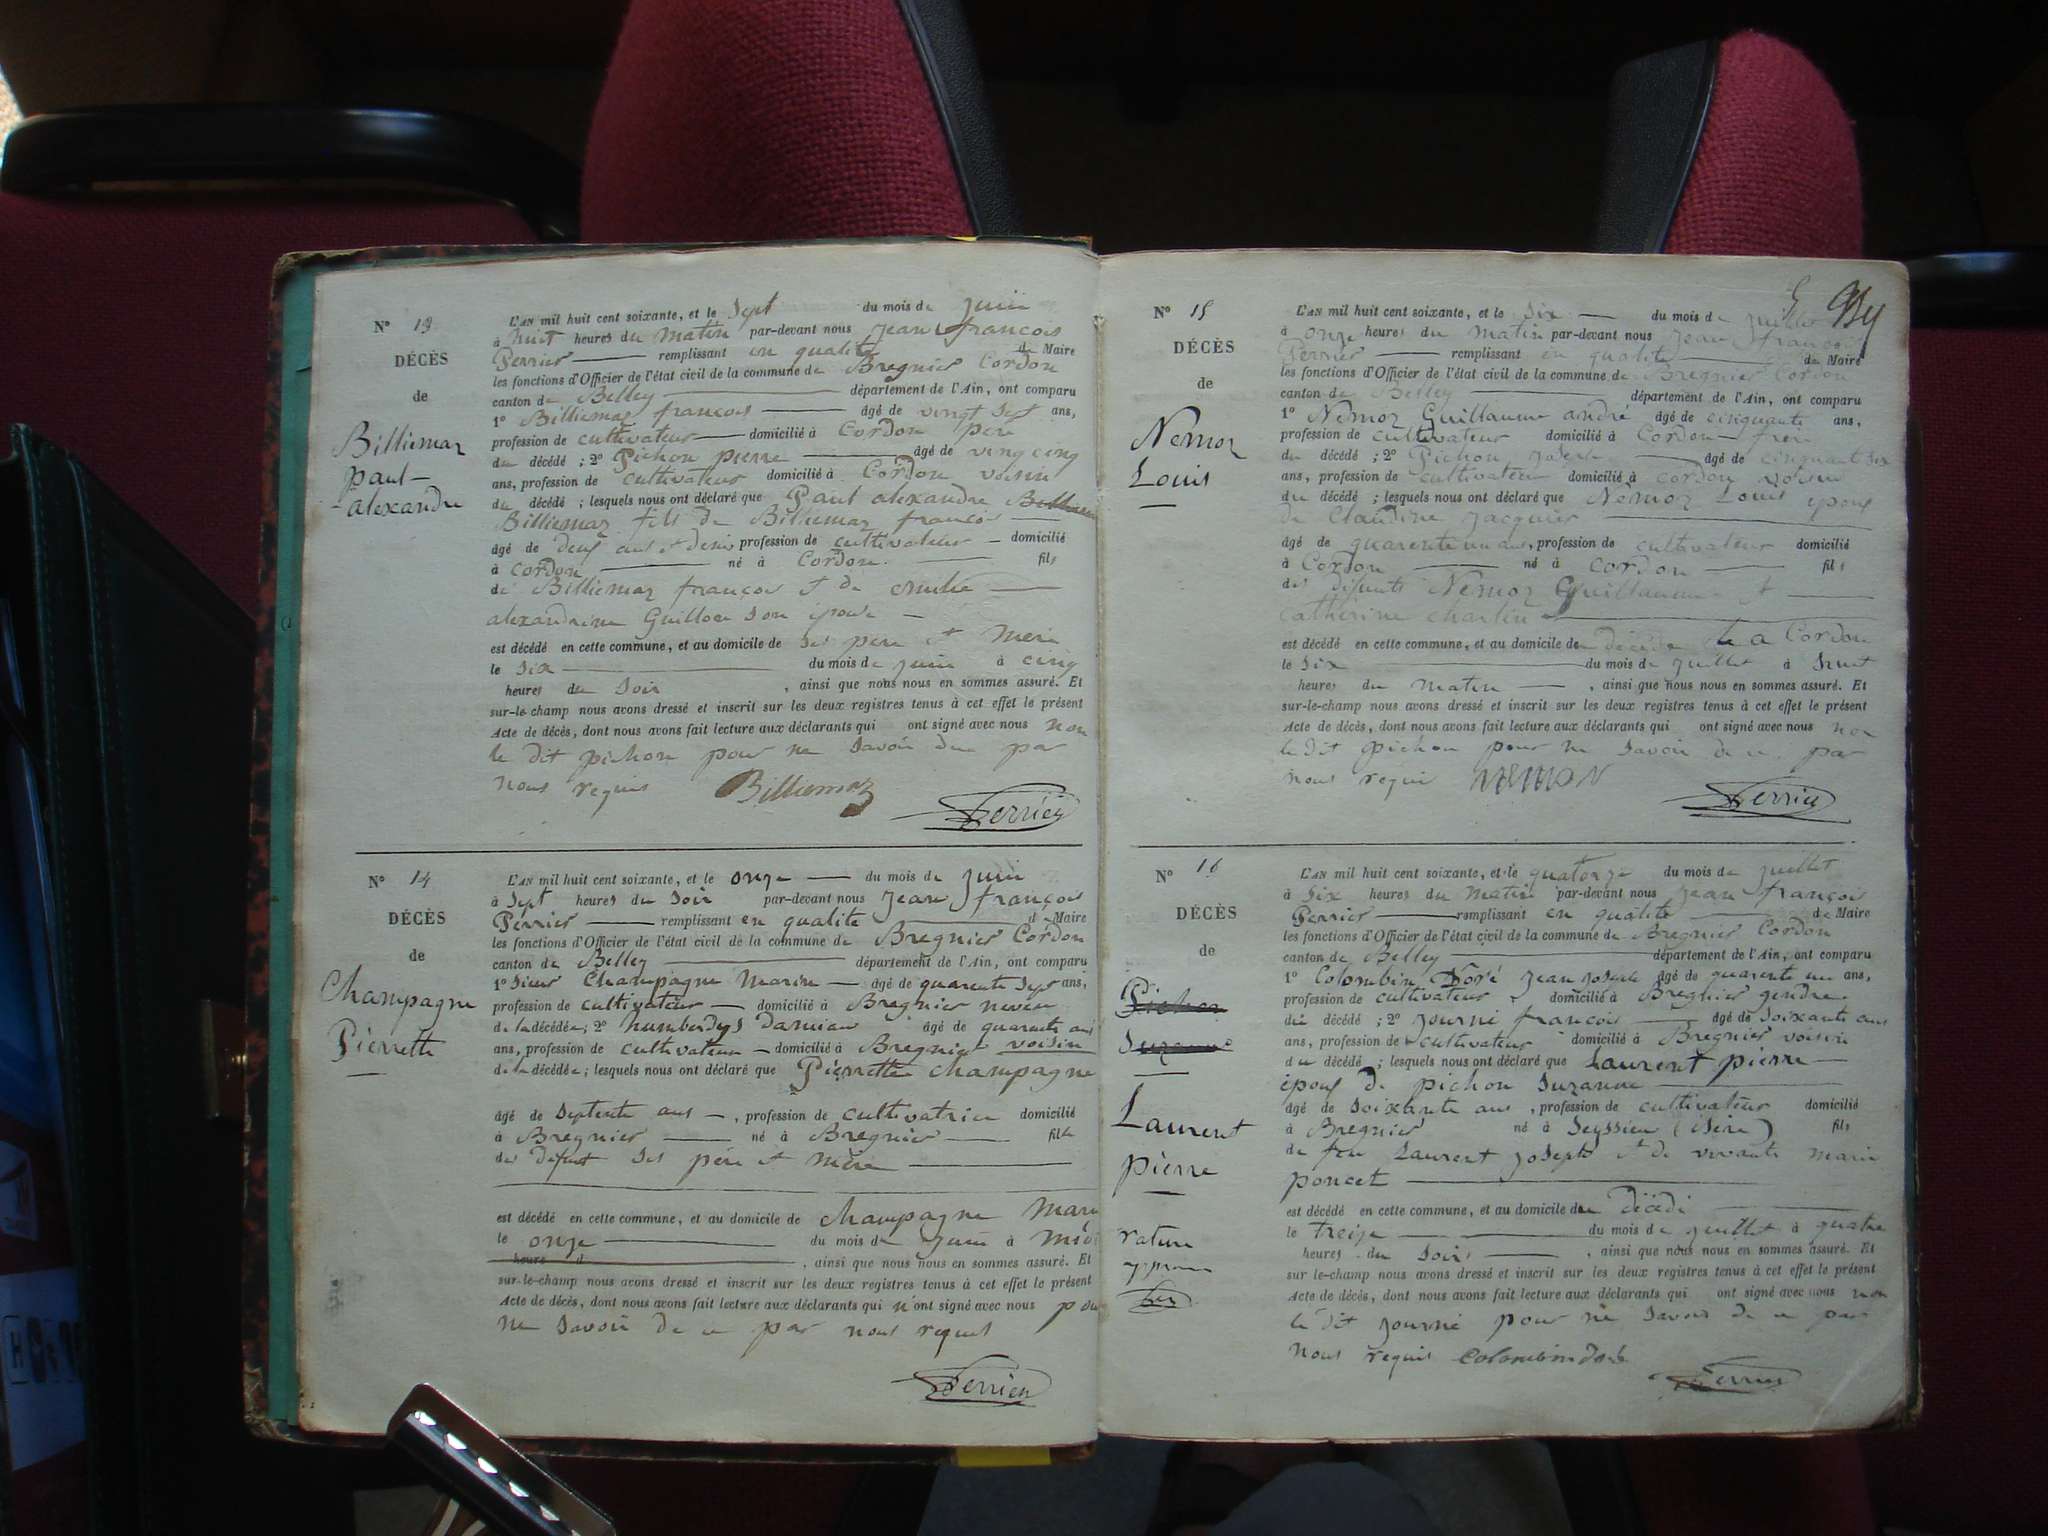 N° 13
DÉCÈS
de
Billiemaz
paul-
alexandre
L'AN mil huit cent soixante, et le sept du mois de juin
à huit heures du matin par-devant nous jean françois
Perrier remplissant en qualité de Maire
les fonctions d'Officier de l'état civil de la commune de Bregnier Cordon
canton de Belley département de l'Ain, ont comparu
1° Billiemaz françois âgé de vingt sept ans,
profession de cultivateur domicilié à Cordon pere
du décédé ; 2° Pichon pierre âgé de vingt cinq
ans, profession de cultivateur domicilié à Cordon voisin
du décédé ; lesquels nous ont déclaré que Paul alexandre
Billiemaz fils de Billiemaz françois
âgé de deux ans et demi profession de cultivateur domicilié
à cordon né à Cordon fils
de Billiemaz françois et de emilie
alexandrine Guillon son épouse
est décédé en cette commune, et au domicile de ses pere et mere
le six du mois de juin à cinq
heures du soir , ainsi que nous nous en sommes assuré. Et
sur-le-champ nous avons dressé et inscrit sur les deux registres tenus à cet effet le présent
Acte de décès, dont nous avons fait lecture aux déclarants qui ont signé avec nous non
le dit pichon pour ne savoir de ce par
nous requis Billiemaz
Perrier
N° 14
DÉCÈS
de
Champagne
Pierrette
L'AN mil huit cent soixante, et le onze du mois de juin
à sept heures du soir par-devant nous jean françois
Perrier remplissant en qualité de Maire
les fonctions d'Officier de l'état civil de la commune de Bregnier Cordon
canton de Belley département de l'Ain, ont comparu
1° sieur Champagne Marin âgé de quarante sept ans,
profession de cultivateur domicilié à Bregnier neveu
de la décédée ; 2° humberdys damien âgé de quarante ans
ans, profession de cultivateur domicilié à Bregnier voisin
de la décédée ; lesquels nous ont déclaré que Pierrette champagne
âgé de septente ans , profession de cultivatrice domicilié
à Bregnier né à Bregnier fille
de défunt ses père et mère
est décédé en cette commune, et au domicile de champagne Marin
le onze du mois de juin à midi
heure d , ainsi que nous nous en sommes assuré. Et
sur-le-champ nous avons dressé et inscrit sur les deux registres tenus à cet effet le présent
Acte de décès, dont nous avons fait lecture aux déclarants qui n'ont signé avec nous pour
ne savoir de ce par nous requis
Perrier
N° 15
DÉCÈS
de
Nemoz
Louis
L'AN mil huit cent soixante, et le six du mois de juillet
à onze heures du matin par-devant nous jean françois
Perrier remplissant en qualité de Maire
les fonctions d'Officier de l'état civil de la commune de Bregnier Cordon
canton de Belley département de l'Ain, ont comparu
1° Nemoz Guillaume andré âgé de cinquante ans,
profession de cultivateur domicilié à Cordon frere
du décédé ; 2° Pichon joseph âgé de cinquante six
ans, profession de cultivateur domicilié à cordon voisin
du décédé ; lesquels nous ont déclaré que Nemoz Louis epoux
de Claudine jacquier
âgé de quarente un ans, profession de cultivateur domicilié
à Cordon né à cordon fils
des défunts Nemoz Guillaume et
catherine charlin
est décédé en cette commune, et au domicile de décédé a Cordon
le six du mois de juillet à huit
heures du matin , ainsi que nous nous en sommes assuré. Et
sur-le-champ nous avons dressé et inscrit sur les deux registres tenus à cet effet le présent
Acte de décès, dont nous avons fait lecture aux déclarants qui ont signé avec nous non
le dit pichon pour ne savoir de ce par
nous requi nemoz
Perrier
N° 16
DÉCÈS
de
Pichon
Suzanne
Laurent
pierre
rature
L'AN mil huit cent soixante, et le quatorze du mois de juillet
à six heures du matin par-devant nous jean françois
Perrier remplissant en qualité de Maire
les fonctions d'Officier de l'état civil de la commune de Bregnier Cordon
canton de Belley département de l'Ain, ont comparu
1° Colombin Doré jean joseph âgé de quarente un ans,
profession de cultivateur domicilié à Bregnier gendre
du décédé ; 2° journé françois âgé de soixante ans
ans, profession de cultivateur domicilié à Bregnier voisin
du décédé ; lesquels nous ont déclaré que Laurent pierre
époux de pichon suzanne
âgé de soixante ans , profession de cultivateur domicilié
à Bregnier né à seyssieu (isere) fils
de feu Laurent joseph et de vivante marie
poncet
est décédé en cette commune, et au domicile du
le treize du mois de juillet à quatre
heures du soir , ainsi que nous nous en sommes assuré. Et
sur le-champ nous avons dressé et inscrit sur les deux registres tenus à cet effet le présent
Acte de décès, dont nous avons fait lecture aux déclarants qui ont signé avec nous non
le dit journé pour ne savoir de ce par
nous requis Colombin doré
Perrier